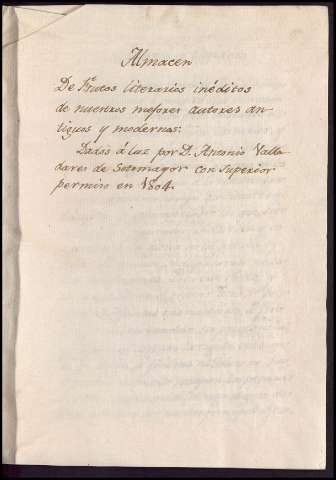 Almacen
De Frutos literarios inéditos
de nuestros mejores autores an-
tiguos y modernos:
Dados á luz por D. Antonio Valla-
dares de Sotomayor con superior
permiso en 1804.